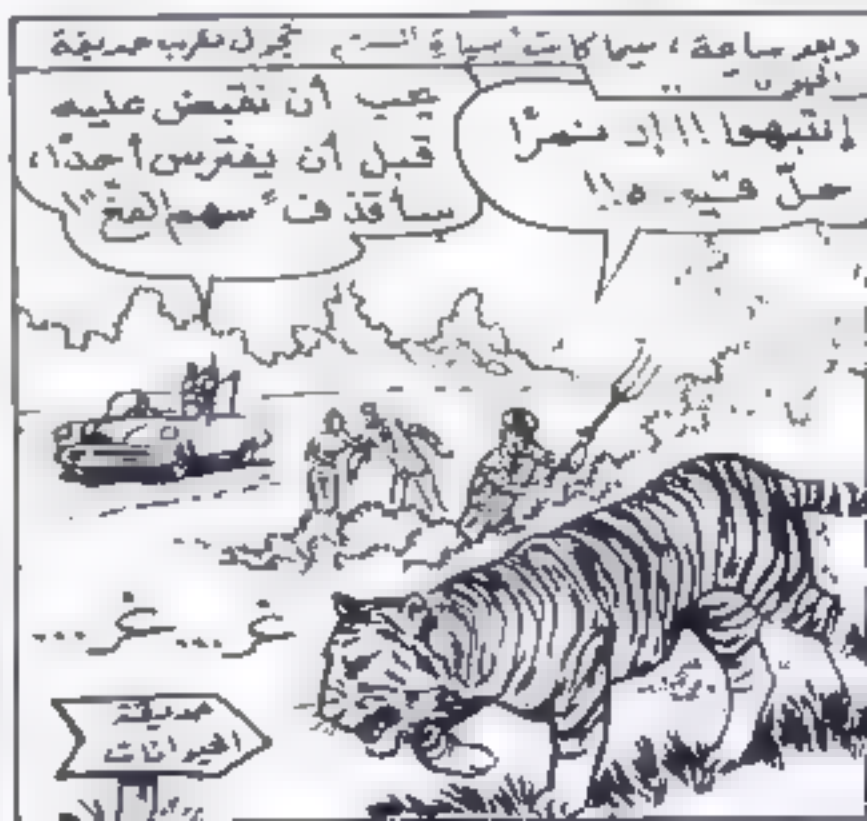 وبعد ساعة، بينما كانت سيارة تجول بقرب حديقة
إنتبهوا!!! إن نمرًا
حلّ قيده!!
يجب أن نقبض عليه
قبل أن يفترس أحدًا،
سأقذف "سهم المخ"!
غر... غر...
حديقة
الحيوانات